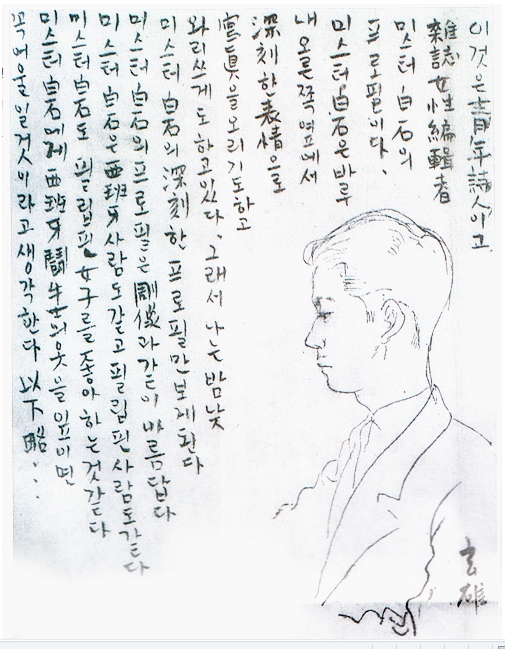 이것은 靑年詩人이고
雜誌女性編輯者
미스터 白石의
프로필이다.
미스터 白石은 바루
내 오른쪽 옆에서
深刻한 表情으로
寫眞을 오리기도 하고
와리쓰게도 하고있다. 그래서 나는 밤낮
미스터 白石의 深刻한 프로필만 보게 된다
미스터 白石의 프로필은 彫像과 같이 아름답다
미스터 白石은 西班牙사람도 같고 필립핀 사람도 같다
미스터 白石도 필립핀 女子를 좋아 하는것 같다
미스터 白石에게 西班牙 鬪牛士의 옷을 입히면
꼭 어울일 것이라고 생각한다 以下略...
玄雄